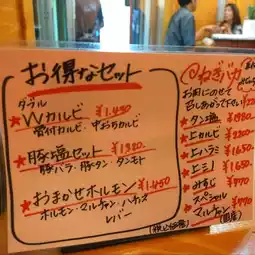 お得なセット
ダブル
★Wカルビ ¥1,450
骨付カルビ・中おちカルビ
★豚塩セット ¥1320
豚バラ・豚タン・トントロ
★おまかせホルモン ¥1450
ホルモン・マルチョウ・ハチノス
レバー
(税込価格)
ねぎ
お肉にのせて
召しあがって下さい
★タン塩
★上カルビ
★上ハラミ ¥1,650
★上ミノ ¥1,150
★みすじ ¥770
★スペシャル
マルチョウ ¥770